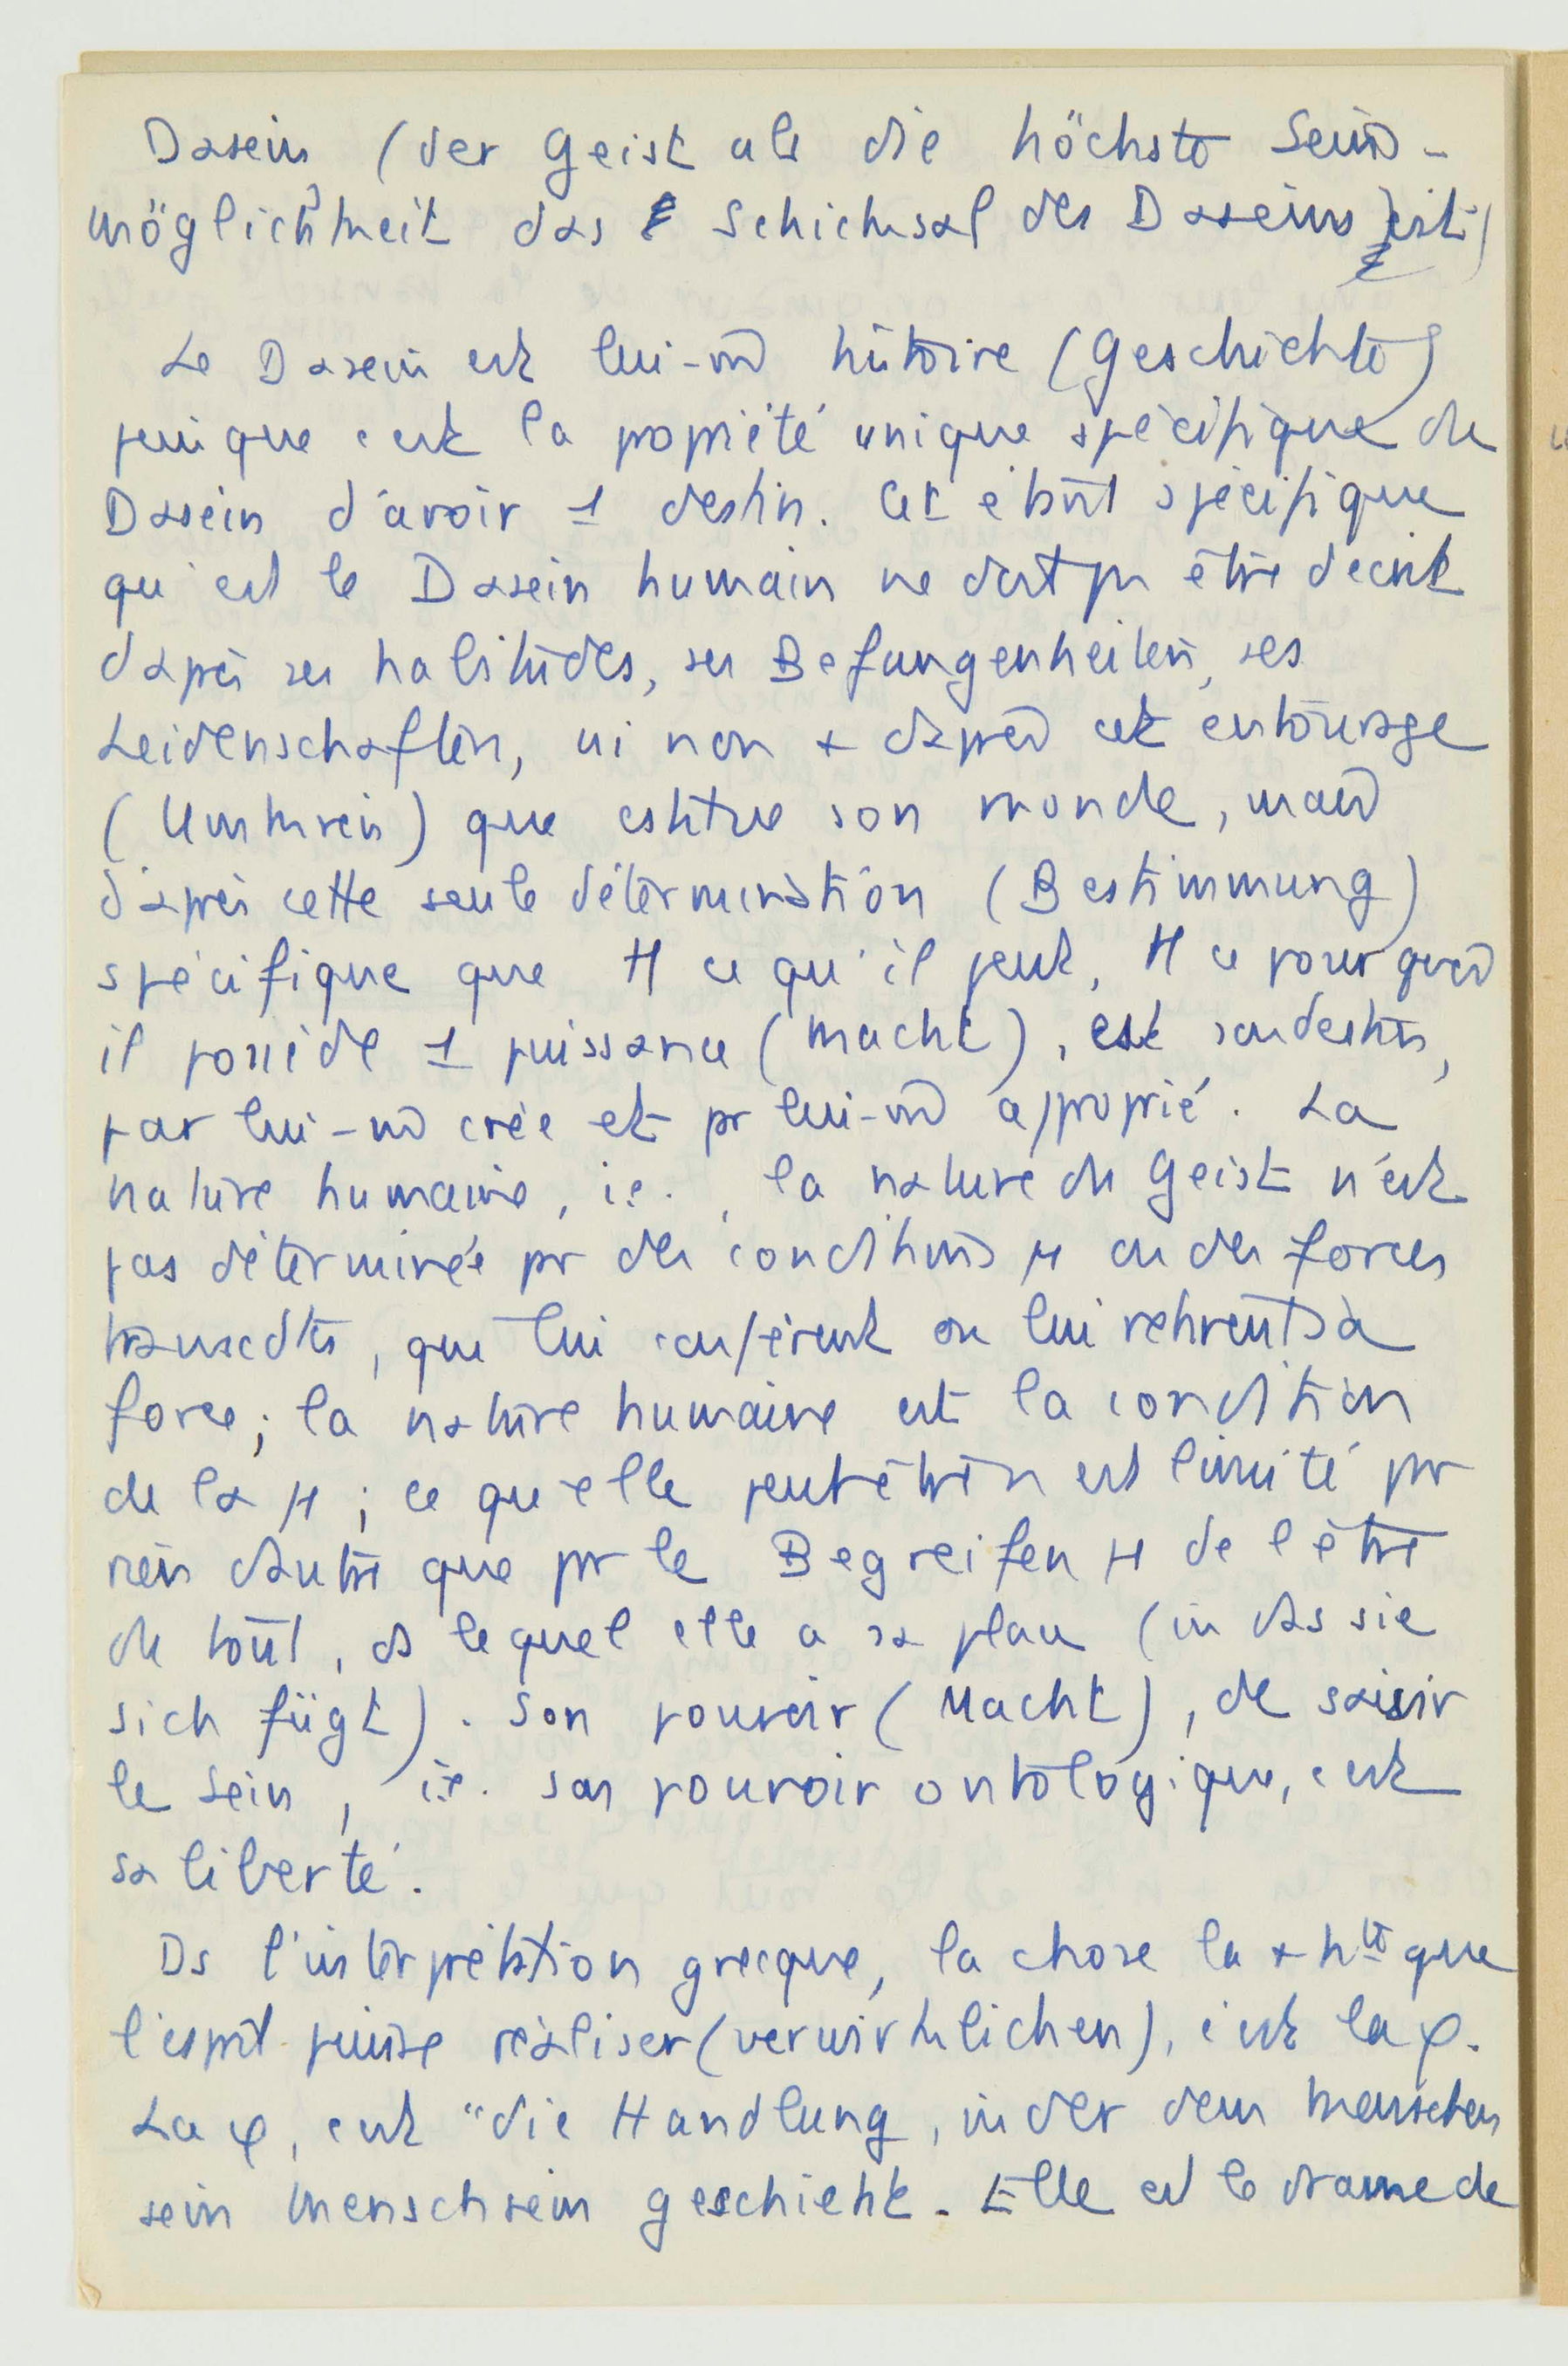 Dasein (der Geist als die höchste Seins-
möglichkeit das Schicksal des Daseins ist)
Le Dasein est lui-m̂ histoire (Geschichte)
puisque c'est la propriété unique spécifique du
Dasein d'avoir 1 destin. Cet étant spécifique
qu'est le Dasein humain ne doit pas être décrit
d'après ses habitudes, ses Befangenheiten, ses
Leidenschaften, ni non + d'après cet entourage
(Umkreis) que constitue son monde, mais
d'après cette seule détermination (Bestimmung)
spécifique que tt ce qu'il peut, tt ce pour quoi
il possède 1 puissance (Macht), est son destin,
par lui-m̂ créé et pr lui-m̂ approprié. La
nature humaine, i.e., la nature du Geist n'est
pas déterminée pr des conditions μ ou des forces
transcdtes, qui lui confèrent ou lui retirent sa
force; la nature humaine est la condition
de la μ; ce qu'elle peut être n'est limité pr
rien d'autre que pr le Begreifen μ de l'être
du tout, ds lequel elle a sa place (in das sie
sich fügt). Son pouvoir (Macht), de saisir
le Sein, i.e. son pouvoir ontologique, c'est
sa liberté.
Ds l'interprétation grecque, la chose la + hte que
l'esprit puisse réaliser (verwirklichen), c'est la φ.
La φ, c'est "die Handlung, in der dem Menschen
sein Menschsein geschieht. Elle est le drame de